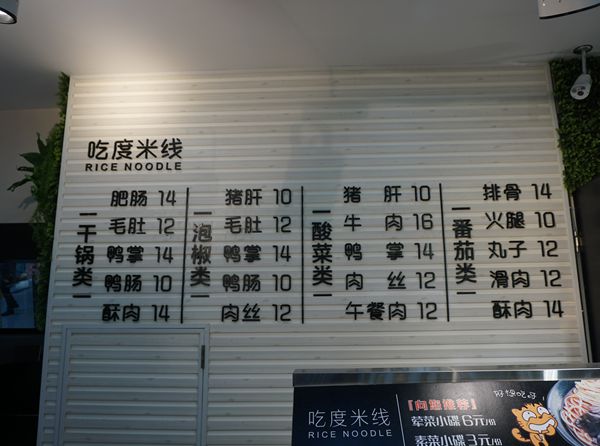 吃度米线
RICE NOODLE
干锅类
肥肠 14
毛肚 12
鸭掌 14
鸭肠 12
酥肉 14
泡椒类
猪肝 10
毛肚 12
鸭掌 14
鸭肠 10
肉丝 12
酸菜类
猪肝 10
牛肉 16
鸭掌 14
肉丝 12
午餐肉 12
番茄类
排骨 14
火腿 10
丸子 12
滑肉 12
酥肉 14
吃度米线
RICE NOODLE
『向您推荐』
荤菜小碟 6元/份
素菜小碟 3元/份